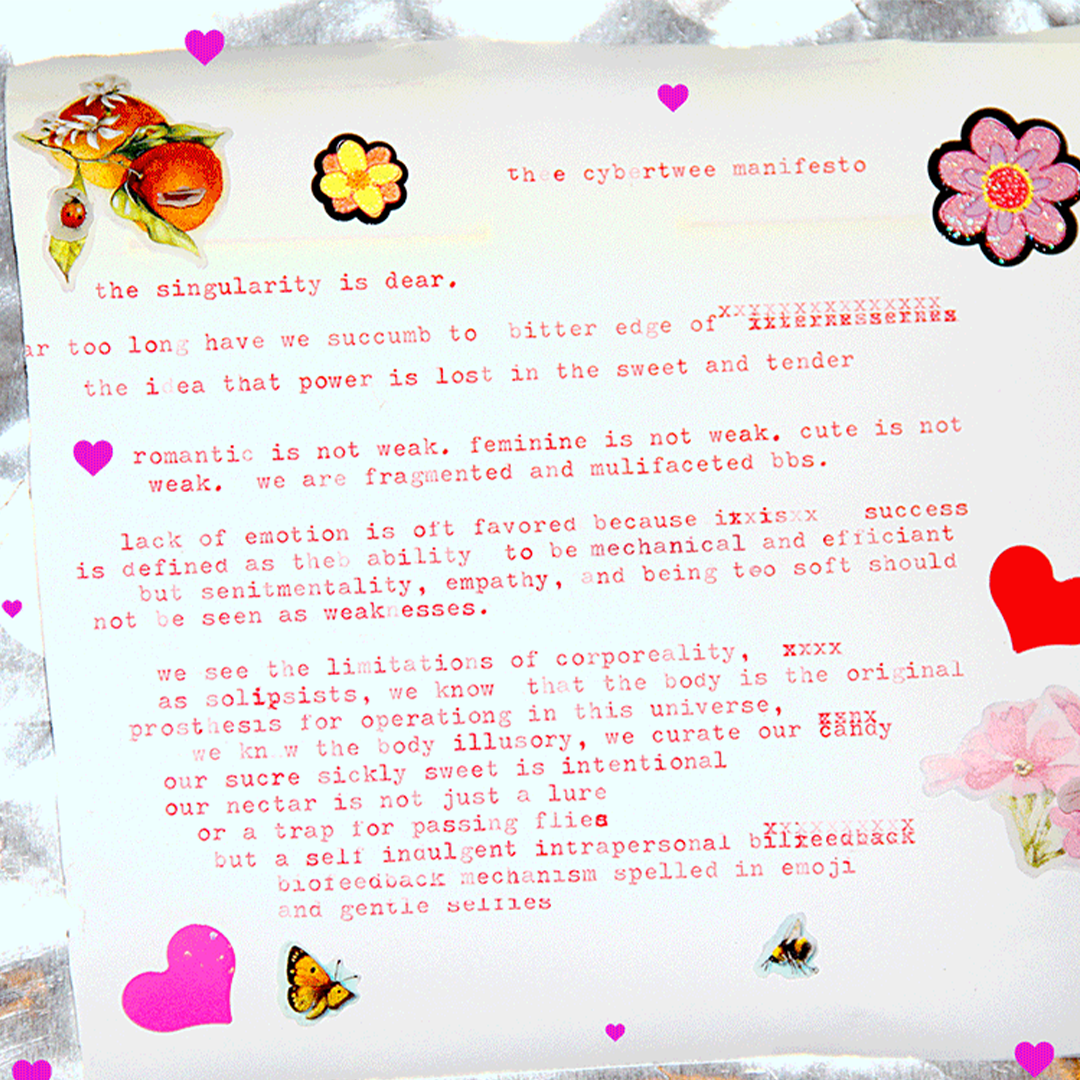 thee cybertwee manifesto
the singularity is dear.
ar too long have we succumb to bitter edge of
the idea that power is lost in the sweet and tender
romantic is not weak. feminine is not weak. cute is not
weak. we are fragmented and mulifaceted bbs.
lack of emotion is oft favored because ixxisxx success
is defined as theb ability to be mechanical and efficiant
but senitmentality, empathy, and being too soft should
not be seen as weaknesses.
we see the limitations of corporeality, xxxx
as solipsists, we know that the body is the original
prosthesis for operationg in this universe,
we know the body illusory, we curate our candy
our sucre sickly sweet is intentional
our nectar is not just a lure
or a trap for passing flies
but a self indulgent intrapersonal bilxeedback
biofeedback mechanism spelled in emoji
and gentle selfies